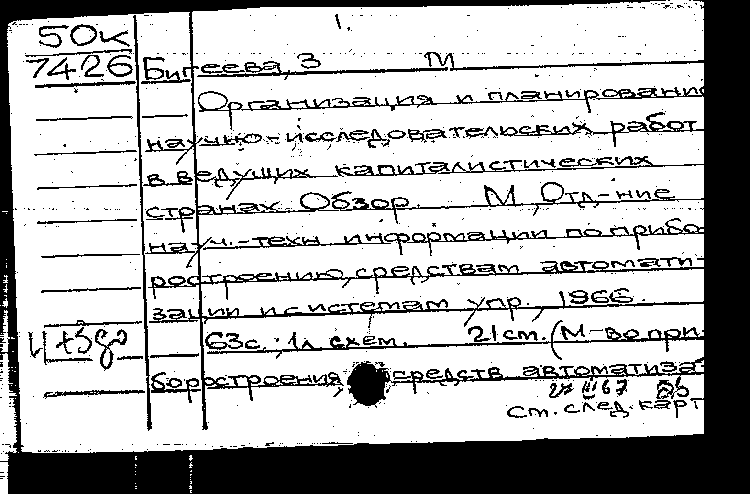 1.
50к
7426 Бигеева, З М
Организация и планирование
научно-исследовательских работ
в ведущих капиталистических
странах Обзор. М, Отд-ние
науч.-техн информации по прибо-
ростроению, средствам автомати-
зации и системам упр., 1966.
63с.; 1л схем. 21 см. (М-во при-
боростроения, средств автоматиза-
27 III 67
см. след. карт